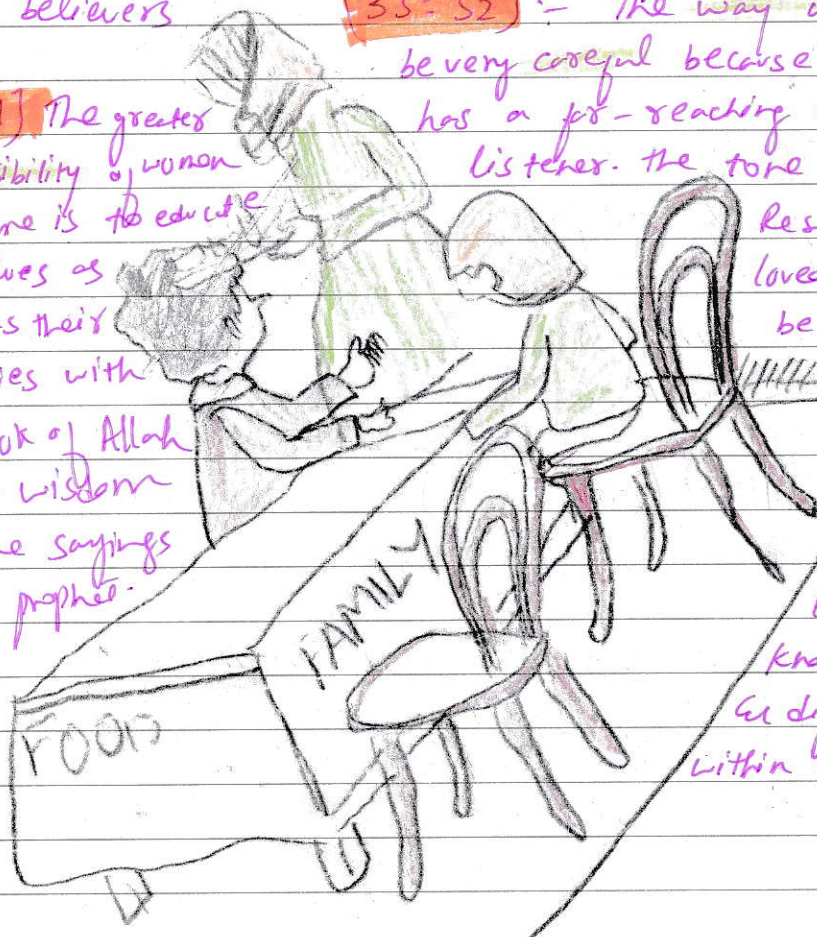 believers
The greater
sibility of women
me is to educate
ves as
s their
es with
ok of Allah
wisdom
e sayings
prophet.
(33-32) :- The way
be very careful because
has a far-reaching
listener. the tone
Res
loved
be
kno
within
FAMILY
FOOD